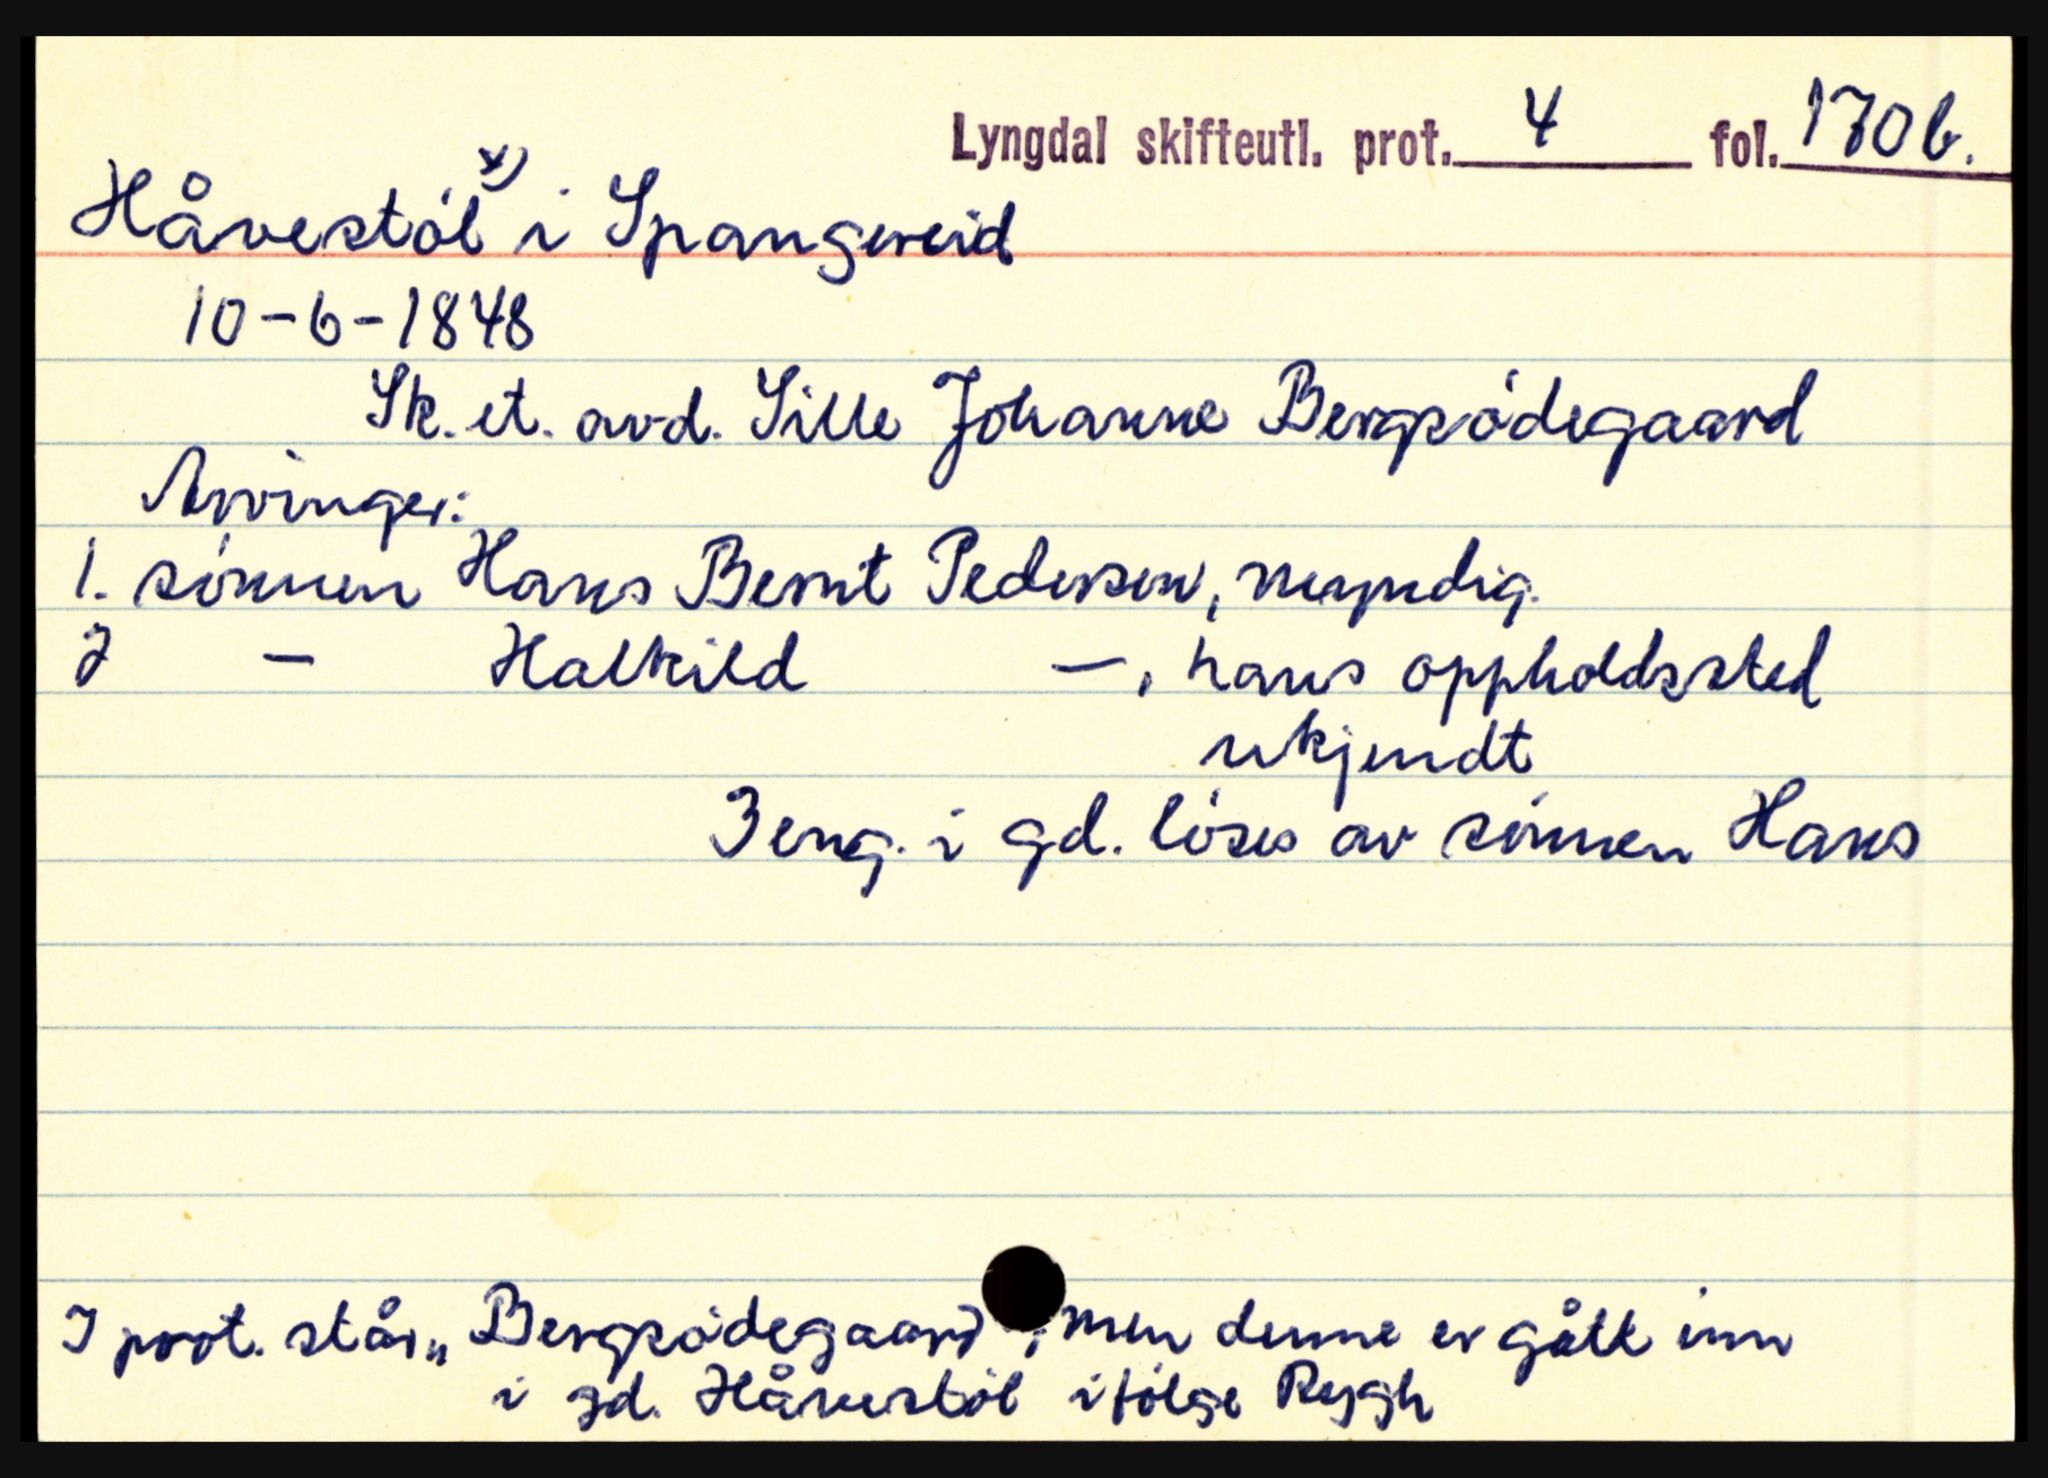 Lyngdal skifteutl. prot. 4 fol. 170b.
Håvestøl x) i Spangereid
10-6-1848
Sk. et. avd. Sille Johanne Bergsødegaard
Arvinger:
1. sønnen Hans Bernt Pedersen, myndig.
2 — Halkild —, hans oppholdssted
ukjendt
3 eng. i gd. løses av sønnen Hans
I prot. står „Bergsødegaard", men denne er gått inn
i gd. Håvestøl ifølge Rygh